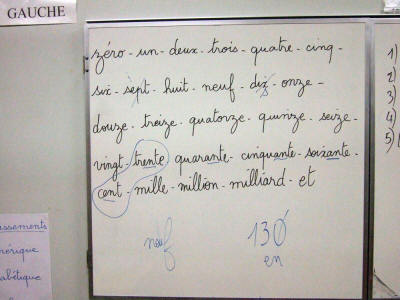 GAUCHE
zéro - un - deux - trois - quatre - cinq -
six - sept - huit - neuf - dix - onze -
douze - treize - quatorze - quinze - seize -
vingt - trente - quarante - cinquante - soixante -
cent - mille - million - milliard - et
neuf
130
en
1)
2)
3)
4)
5)